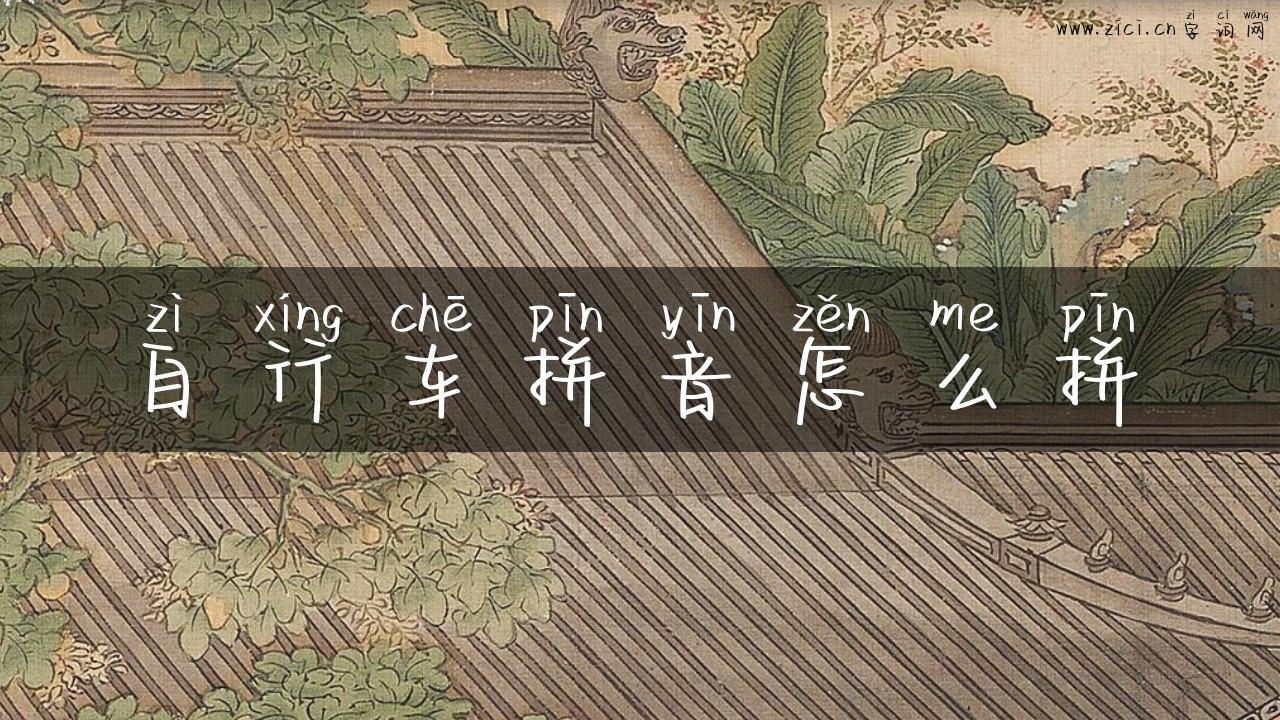 zì cí wǎng
www.zici.cn 字 词 网
zì xíng chē pīn yīn zěn me pīn
自 行 车 拼 音 怎 么 拼